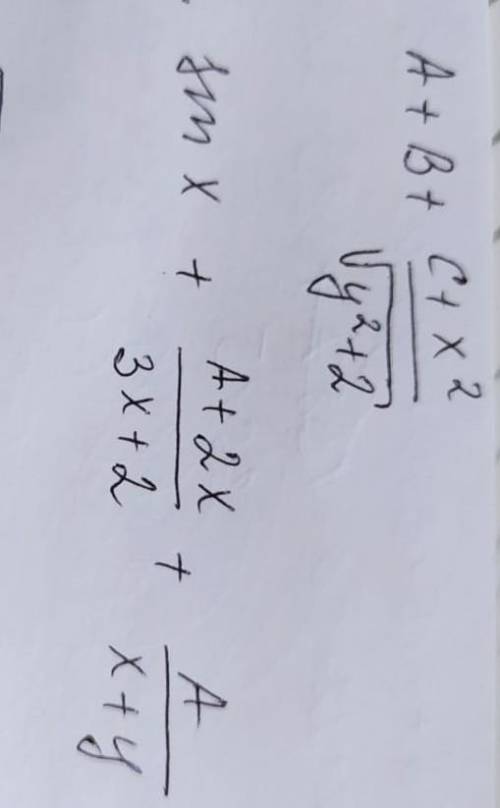 A + B + (C + x²)/(√(y² + 2))
sin x + (A + 2x)/(3x + 2) + A/(x + y)